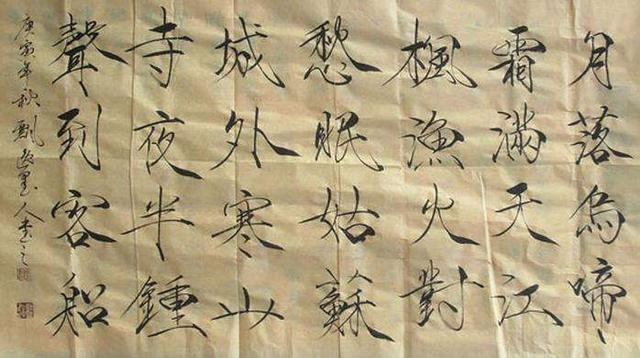 月落烏啼
霜滿天江
楓漁火對
愁眠姑蘇
城外寒山
寺夜半鍾
聲到客船
庚寅年秋